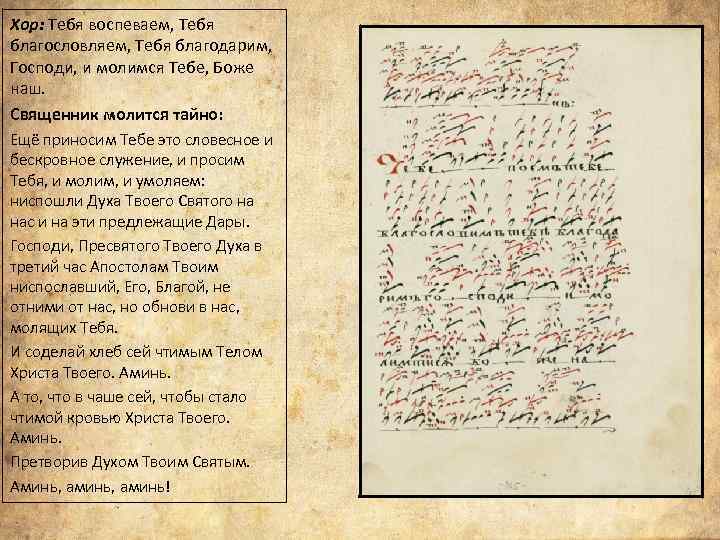 Хор: Тебя воспеваем, Тебя
благословляем, Тебя благодарим,
Господи, и молимся Тебе, Боже
наш.
Священник молится тайно:
Ещё приносим Тебе это словесное и
бескровное служение, и просим
Тебя, и молим, и умоляем:
ниспошли Духа Твоего Святого на
нас и на эти предлежащие Дары.
Господи, Пресвятого Твоего Духа в
третий час Апостолам Твоим
ниспославший, Его, Благой, не
отними от нас, но обнови в нас,
молящих Тебя.
И соделай хлеб сей чтимым Телом
Христа Твоего. Аминь.
А то, что в чаше сей, чтобы стало
чтимой кровью Христа Твоего.
Аминь.
Претворив Духом Твоим Святым.
Аминь, аминь, аминь!